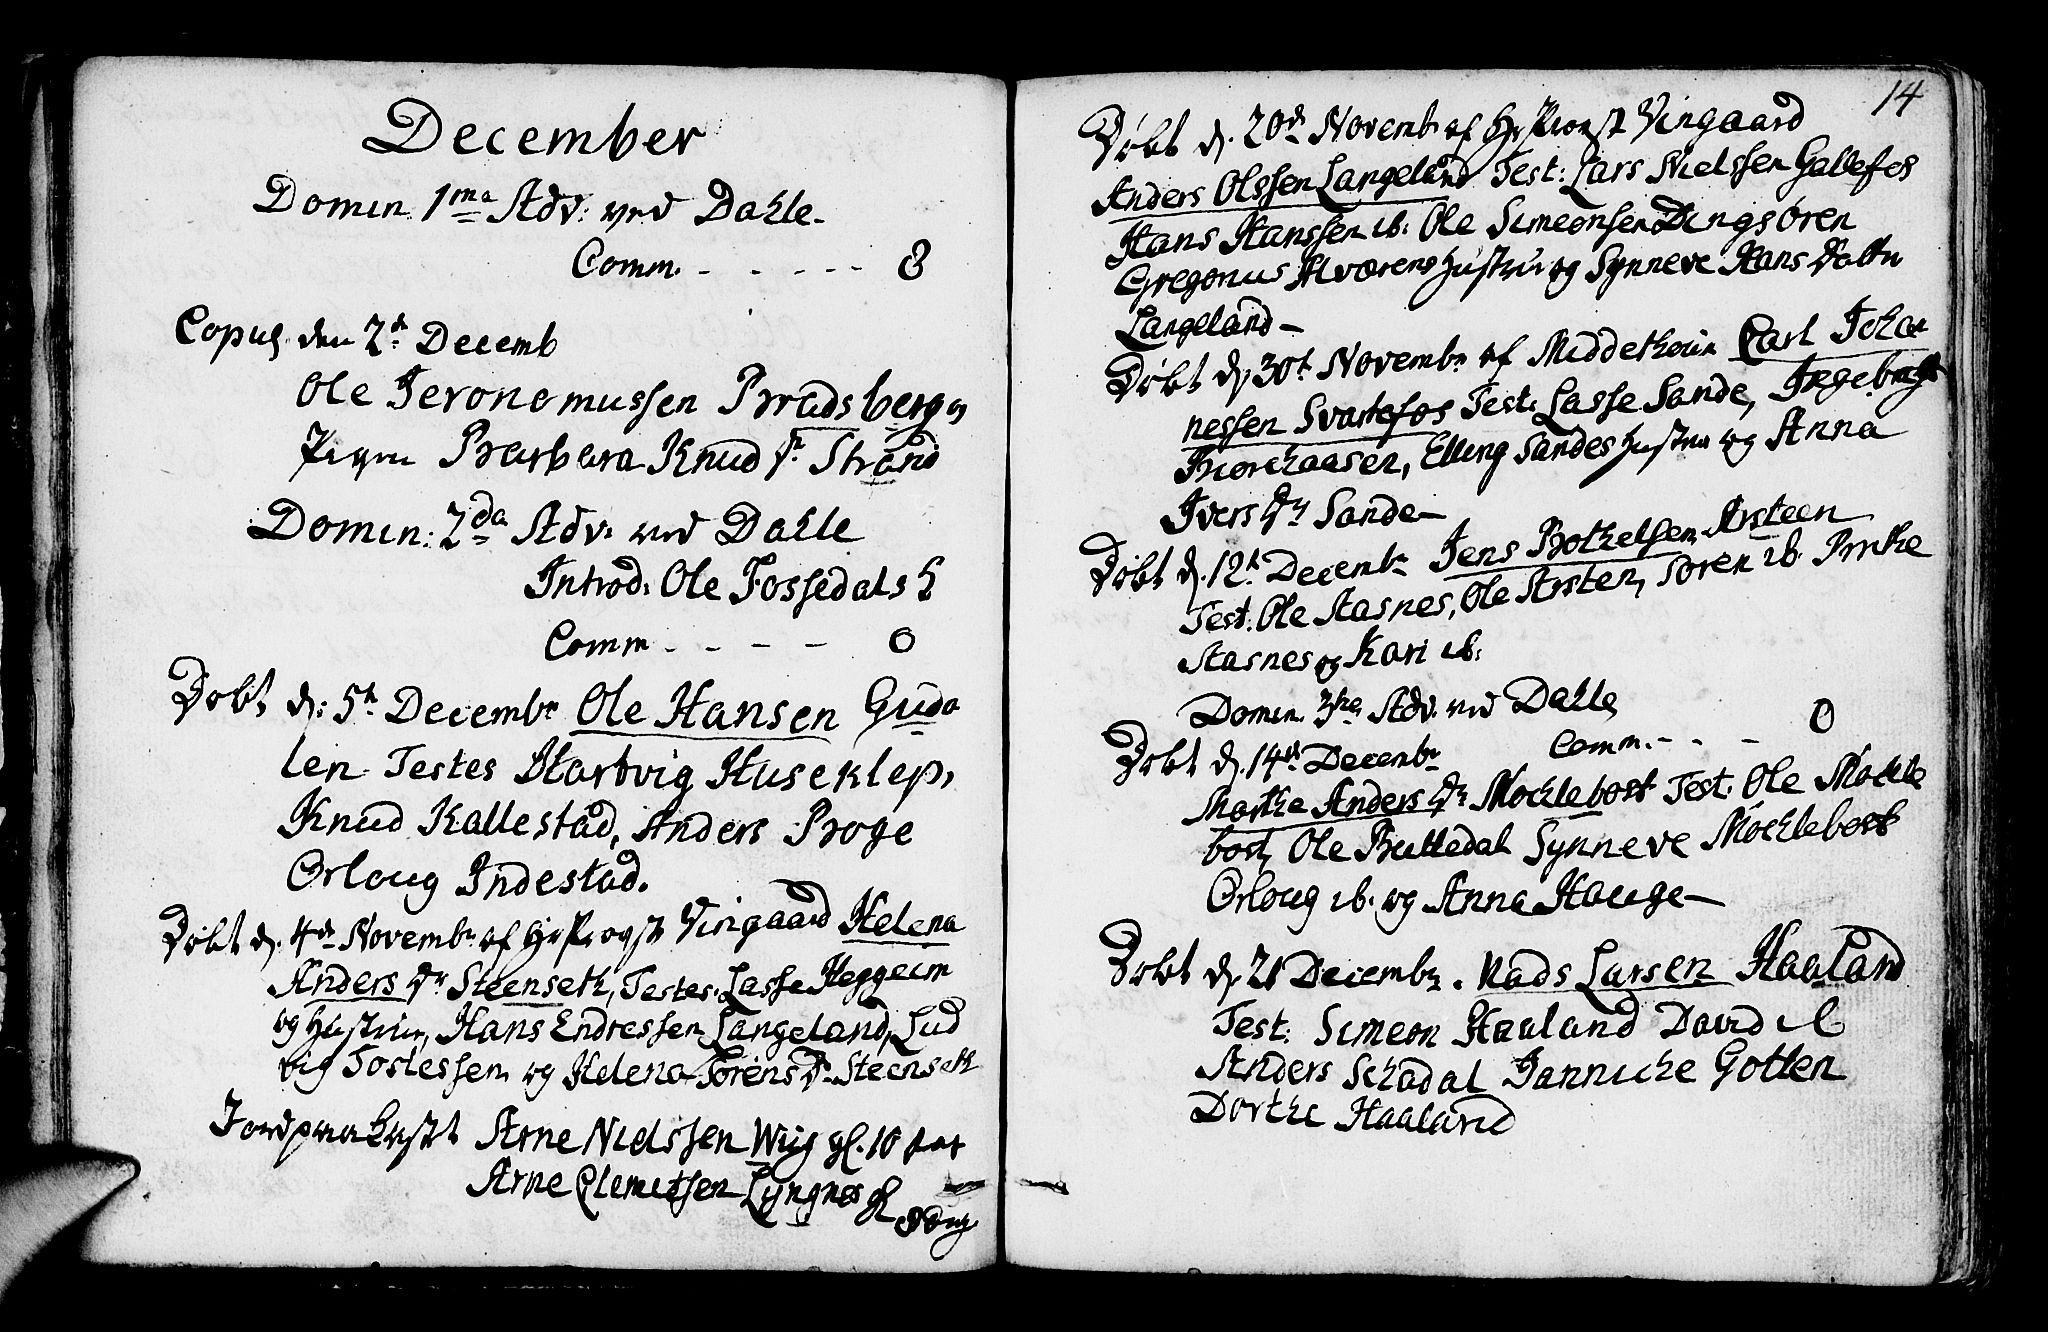 December
Domin 1ma Adv: ved Dahle
Comm. - - - - - 8
Copul. den 2d Decemb
Ole Jeronemussen Bradsberg og
Pigen Barbara Knud Dr Strand
Domin: 2da Adv. ved Dahle
Introd: Ole Fossedals h
Comm - - - - 0
Döbt d: 5t Decembr Ole Hansen Guda
len Testes Hartvig Huseklep,
Knud Kallestad, Anders Boge
Orloug Indestad.
Döbt d. 4de Novembr af Hr Provst Vingaard Helena
Anders Dr Steenseth, Testes. Lasse Heggeim
og Hustrue, Hans Endressen Langeland, Lud
vig Tostessen og Helena Sörens D. Steenseth
Jordpaakastet Arne Nielssen Wiig gl. 10 aar
Arne Clemetsen Lyngnes gl
14
Döbt d. 20de Novemb af Hr Provst Vingaard
Anders Olssen Langeland Test: Lars Nielssen Gallefos
Hans Hanssen ib. Ole Simeonsen Dingsören
Gregorius Alværens Hustru og Synneve Hans Dattr
Langeland -
Döbt d. 30t Novembr af Middethoun Carl Johan
nessen Svartefos Test: Lasse Sande, Ingeborg
Biörchaasen, Elling Sandes Hustru og Anna
Ivers Dr Sande -
Döbt d. 12t Decembr Jens Bothelsen Arsteen
Test: Ole Aasnes, Ole Arsten, Sören ib. Brithe
Aasnes og Kari ib:
Domin. 3tia Adv. ved Dahle
Comm. - - - 0
Döbt d. 14de Decembr
Marthe Anders Dr Mochlebost Test: Ole Mochle
bost, Ole Bulledal Synneve Mochlebost
Orloug ib. og Anna Hauge -
Döbt d. 21 Decembr. Mads Larsen Haaland
Test: Simeon Haaland David ib
Anders Schadal Janniche Gotten
Dorthe Haaland